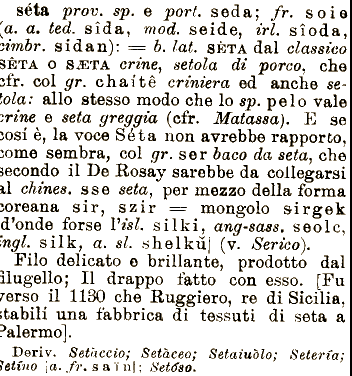 séta prov. sp. e port. seda; fr. soie
(a. a. ted. sîda, mod. seide, irl. sîoda,
cimbr. sidan): = b. lat. SÈTA dal classico
SÈTA o SÆTA crine, setola di porco, che
cfr. col gr. chaítê criniera ed anche se-
tola: allo stesso modo che lo sp. pelo vale
crine e seta greggia (cfr. Matassa). E se
cosí è, la voce Séta non avrebbe rapporto,
come sembra, col gr. ser baco da seta, che
secondo il De Rosay sarebbe da collegarsi
al chines. sse seta, per mezzo della forma
coreana sir, szir = mongolo sirgek
[d'onde forse l'isl. silki, ang-sass. seolc,
ingl. silk, a. sl. shelkŭ] (v. Serico).
Filo delicato e brillante, prodotto dal
filugello; Il drappo fatto con esso. [Fu
verso il 1130 che Ruggiero, re di Sicilia,
stabilí una fabbrica di tessuti di seta a
Palermo].
Deriv. Setàccio; Setàceo; Setaiuòlo; Setería;
Setíno [a. fr. saïn]; Setóso.